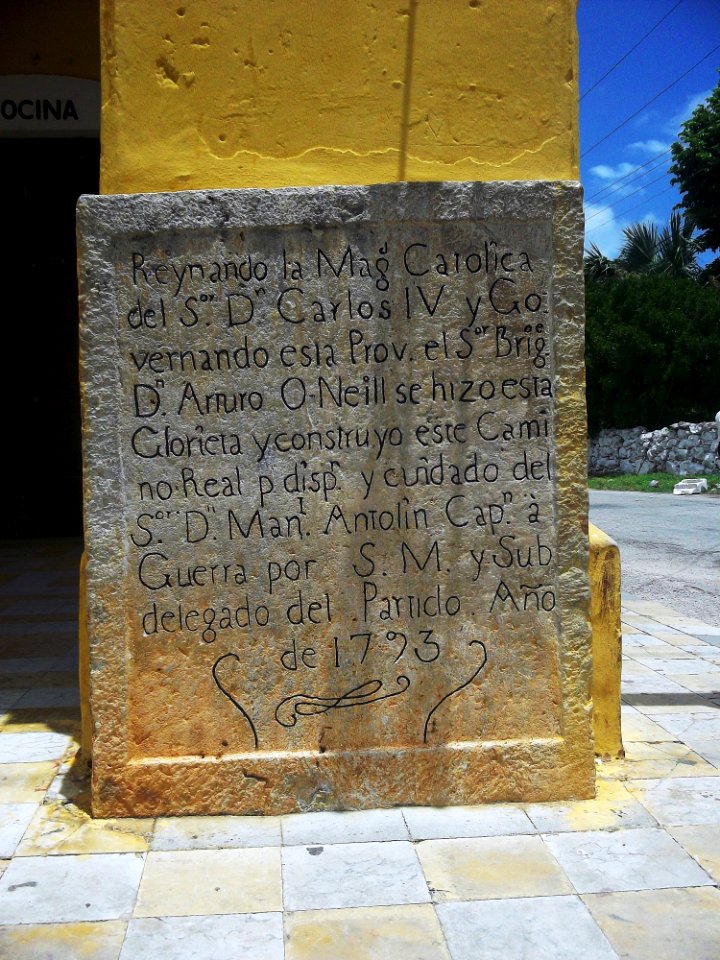 OCINA
Reynando la Magᵈ Catolica
del Sᵒʳ. Dⁿ Carlos IV y Go-
vernando esta Prov. el Sᵒʳ Brigᵉ
Dⁿ. Arturo O-Neill se hizo esta
Glorieta y construyo este Cami
no Real p dispⁿ. y cuidado del
Sᵒʳ Dⁿ. Manˡ. Antolin Capⁿ. à
Guerra por S. M. y Sub
delegado del Partido. Año
de 1793